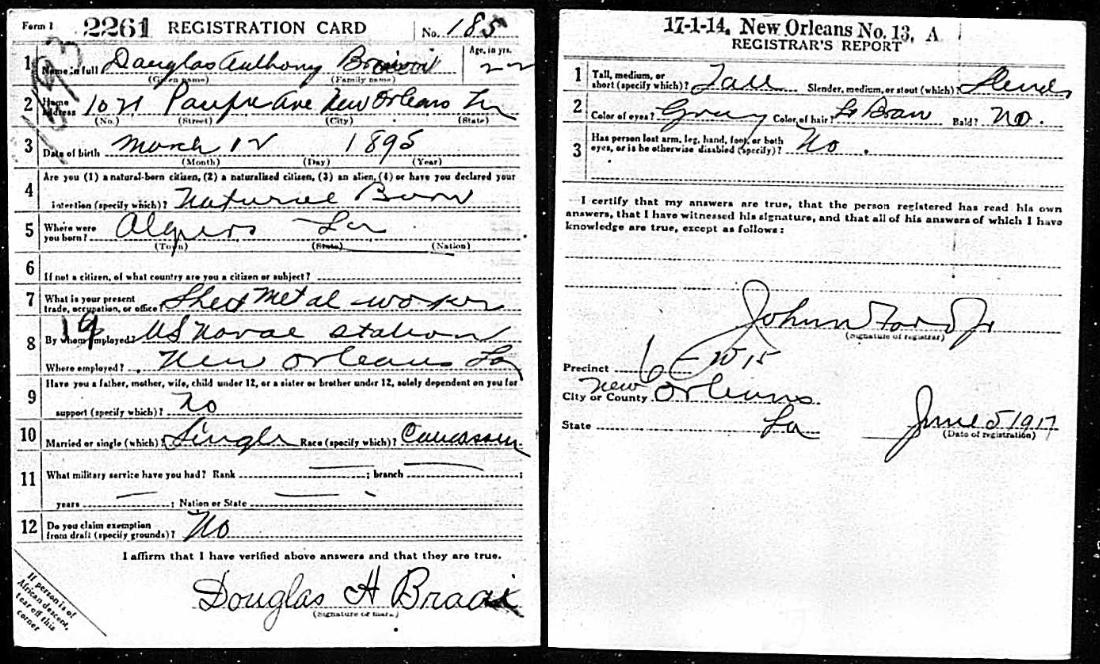 Form 1 2261 REGISTRATION CARD No. 185
1 Name in full Douglas Anthony Age, in yrs. 22
(Given name) (Family name)
2 Home address 1021 Ave New Orleans La
(No.) (Street) (City) (State)
3 Date of birth March 12 1895
(Month) (Day) (Year)
Are you (1) a natural-born citizen, (2) a naturalized citizen, (3) an alien, (4) or have you declared your
4 intention (specify which)? Natural Born
5 Where were you born? Algiers La
(Town) (State) (Nation)
6 If not a citizen, of what country are you a citizen or subject?
7 What is your present trade, occupation, or office? Sheet Metal worker
19
8 By whom employed? US Naval Station
Where employed? New Orleans La
Have you a father, mother, wife, child under 12, or a sister or brother under 12, solely dependent on you for
9 support (specify which)? No
10 Married or single (which)? Single Race (specify which)? Caucasian
11 What military service have you had? Rank — ; branch — ;
years — ; Nation or State —
12 Do you claim exemption from draft (specify grounds)? No
I affirm that I have verified above answers and that they are true.
Douglas A
(Signature or mark)
If person is of
African descent,
tear off this
corner
17-1-14. New Orleans No. 13, A
REGISTRAR'S REPORT
1 Tall, medium, or short (specify which)? Tall Slender, medium, or stout (which)? Slender
2 Color of eyes? Gray Color of hair? Lt Brown Bald? No.
3 Has person lost arm, leg, hand, foot, or both eyes, or is he otherwise disabled (specify)? No.
I certify that my answers are true, that the person registered has read his own
answers, that I have witnessed his signature, and that all of his answers of which I have
knowledge are true, except as follows:
John Jr
(Signature of registrar)
Precinct 6 - W 15
City or County New Orleans
State La June 5 1917
(Date of registration)